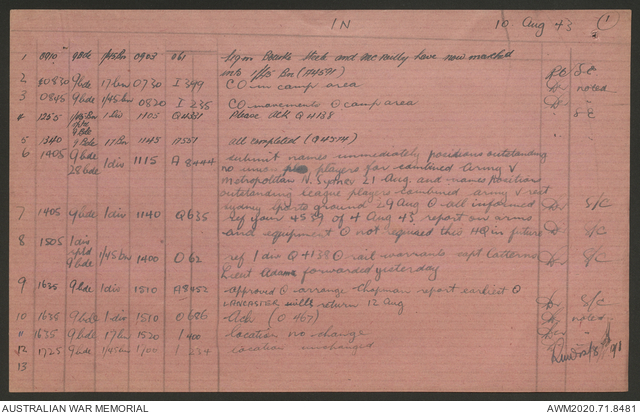 IN 10 Aug 43 1
1 0910 9 Bde 1/45 Bn 0903 061 Sigm Banks and McNally have now marched
into 1/45 Bn
2 0830 9 bde 17 bn 0730 I 399 CO in camp area noted
3 0845 9 bde 1/45 bn 0820 I 235 CO movements O camp area
4 1255 1 Div 1105 Please ack Q4138
5 1340 9 Bde 17 Bn 1145 All completed (Q4574)
6 1405 9 bde 1 div 1115 A8444 submit names immediately positions outstanding
28 bde no under players for combined Army V
Metropolitan N. Sydney 21 Aug. and names positions
outstanding league players combined army V rest
sydney sports ground 29 Aug O all informed
7 1405 9 bde 1 div 1140 Q635 ref your 4539 of 4 Aug 43 report on arms S/C
and equipment O not required this HQ in future
8 1505 1 div 1/45 bn 1400 O62 ref 1 div Q4138 O rail warrants capt S/C
9 bde Lieut Adams forwarded yesterday
9 1625 9 bde 1 div 1510 A8452 approved O arrange Chapman report earliest O S/C
LANCASTER will return 12 Aug
10 1625 9 bde 1 div 1510 O686 Ack (O 467) noted
11 1635 9 bde 17 bn 1520 I 400 location no change
12 1725 9 bde 1/45 bn 1700 I 234 location unchanged
13
AUSTRALIAN WAR MEMORIAL AWM2020.71.8481